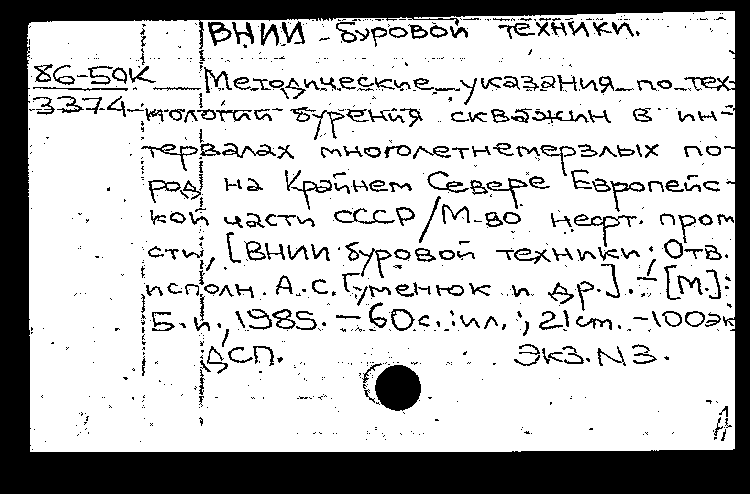 ВНИИ буровой техники.
86-50К Методические указания по тех-
3374 нологии бурения скважин в ин-
тервалах многолетнемерзлых по-
род на Крайнем Севере Европейс-
кой части СССР / М-во нефт. пром
сти, [ВНИИ буровой техники; Отв.
исполн. А.С. Гуменюк и др.]. - [М.]:
Б.и., 1985. - 60с.: ил.; 21 см. - 100 эк
ДСП. Экз. N 3.
А